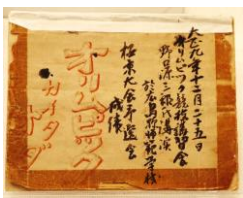 大正九年十二月二十五日
オリムピック競技講習会
野口源三郎氏講演
於広島縣師範学校
極東大会予選会
成績
オリムピック